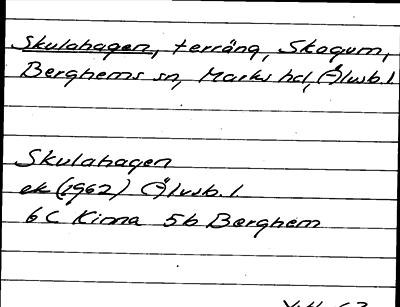 Skulahagen, terräng, Skogum,
Berghems sn, Marks hd, Älvsb. l
Skulahagen
ek (1962) Älvsb. l.
6C Kinna 5b Berghem